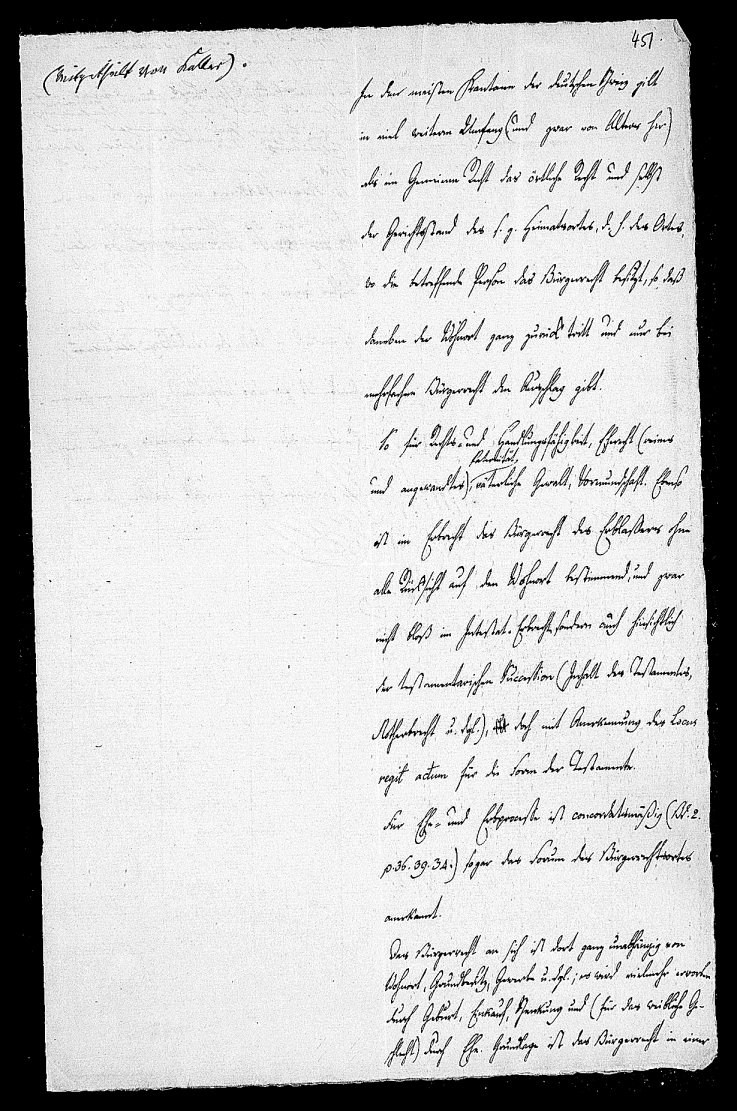 451.
(Mitgetheilt von Keller).
In den meisten Kantonen der deutschen Schweiz gilt
in viel weiterm Umfang (und zwar von Alters her)
als im Gemeinen Recht das örtliche Recht und selbst
der Gerichtsstand des s. g. Heimatsortes, d. h. des Ortes,
wo die betreffende Person das Bürgerrecht besitzt, so daß
daneben der Wohnort ganz zurück tritt und nur bei
mehrfachem Bürgerrecht den Ausschlag gibt.
So für Rechts- und Handlungsfähigkeit, Eherecht (reines
Paternität,
und angewandtes), väterliche Gewalt, Vormundschaft. Ebenso
ist im Erbrecht das Bürgerrecht des Erblassers ohne
alle Rücksicht auf den Wohnort bestimmend, und zwar
nicht bloß im Intestat-Erbrecht, sondern auch hinsichtlich
der testamentarischen Succession (Inhalt des Testamentes,
Notherbrecht u. dgl.), doch mit Anerkennung des Locus
regit actum für die Form der Testamente.
Für Ehe- und Erbprocesse ist concordatsmäßig (Bd. 2.
p. 36. 39. 34.) sogar das Forum des Bürgerrechtsortes
anerkannt.
Das Bürgerrecht an sich ist dort ganz unabhängig von
Wohnort, Grundbesitz, Gewerbe u. dgl.; es wird vielmehr erworben
durch Geburt, Einkauf, Schenkung und (für das weibliche Ge-
schlecht) durch Ehe. Grundlage ist das Bürgerrecht in einer